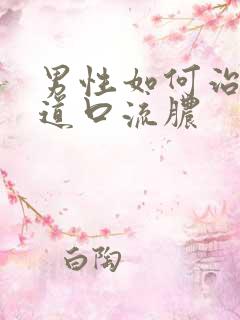 男性如何治
道口流膿
白陶